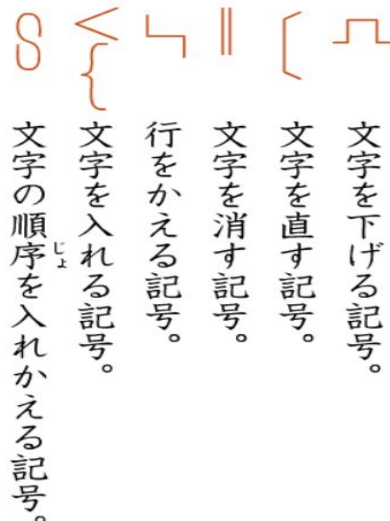 文字を下げる記号。
文字を直す記号。
文字を消す記号。
行をかえる記号。
文字を入れる記号。
文字の順序じょを入れかえる記号。